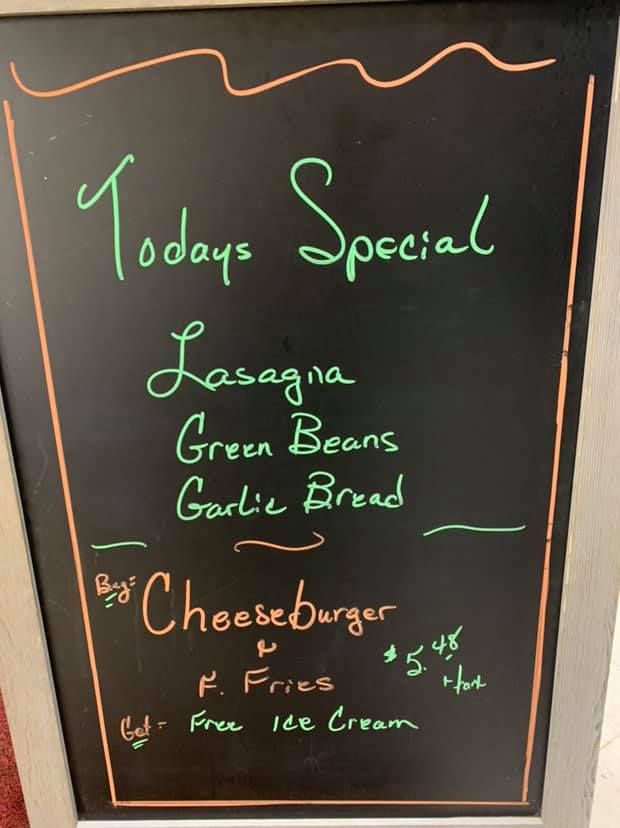 Todays Special
Lasagna
Green Beans
Garlic Bread
Buy:
Cheeseburger
&
F. Fries
$5.48
+ tax
Get - Free Ice Cream